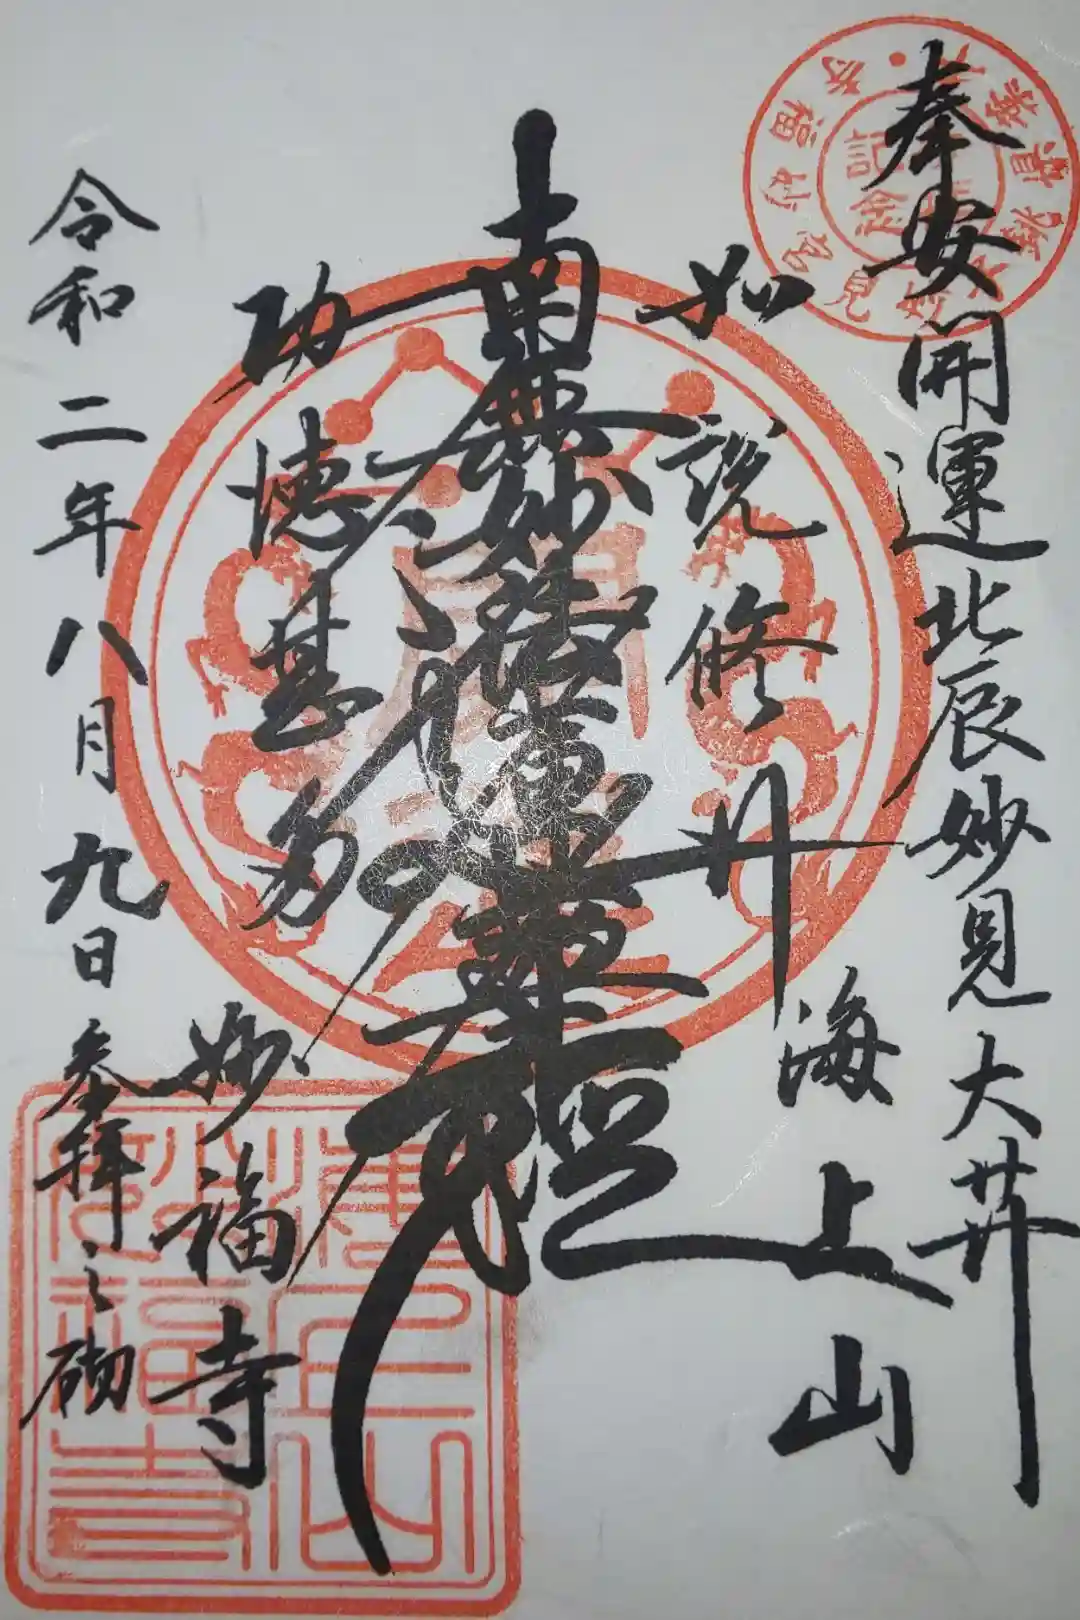 奉安開運北辰妙見大𦬇
海上山
如説修行
南無妙法蓮華經
功徳甚多
妙福寺
令和二年八月九日参拝之砌